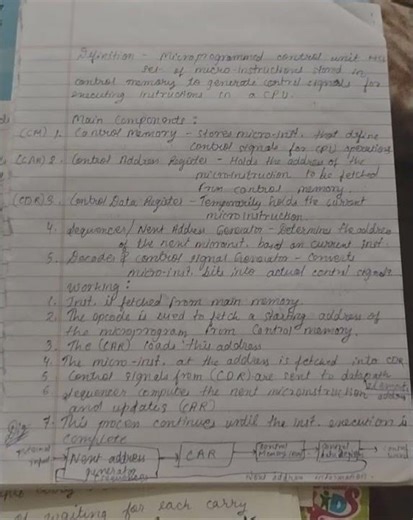 Definition - Microprogrammed control unit uses
set of micro-instructions stored in
control memory to generate control signals for
executing instructions in a CPU.
Main Components :
(CM) 1. Control Memory - Stores micro-inst. that define
control signals for CPU operations
(CAR) 2. Control Address Register - Holds the address of the
microinstruction to be fetched
from control memory.
(CDR) 3. Control Data Register - Temporarily holds the current
microinstruction.
4. Sequencer / Next Address Generator - Determine the address
of the next microinst. based on current inst.
5. Decoder & control signal Generator - Converts
micro-inst. bits into actual control signals
Working :
1. Inst. is fetched from main memory.
2. The opcode is used to fetch a starting address of
the microprogram from control memory.
3. The (CAR) loads this address
4. The micro-inst. at the address is fetched into CDR
5. Control signals from (CDR) are sent to datapath
6. Sequencer computes the next microinstruction address
and updates (CAR)
7. This process continues until the inst. execution is
complete
External input
Next address generator (sequencer)
CAR
Control Memory (CM)
Control data register
Control
Next address information
of waiting for each carry
KiDS